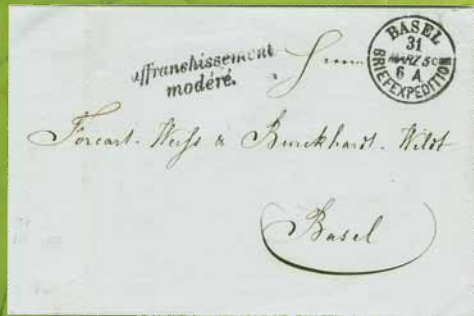 affranchissement
modéré.
BASEL
31
MARZ
6 A
BRIEFEXPEDITION
Herrn
Forcart-Weiss & Burckhardt-Wildt
Basel